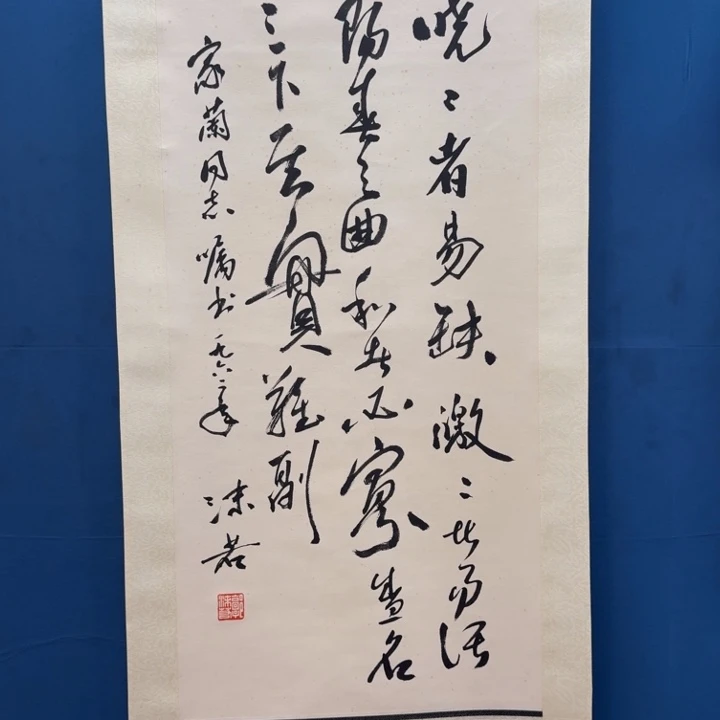 嶢〻者易缺皦〻者易污
陽春之曲和者必寡盛名
之下其實難副
家蘭同志嘱书一九六二年
沫若